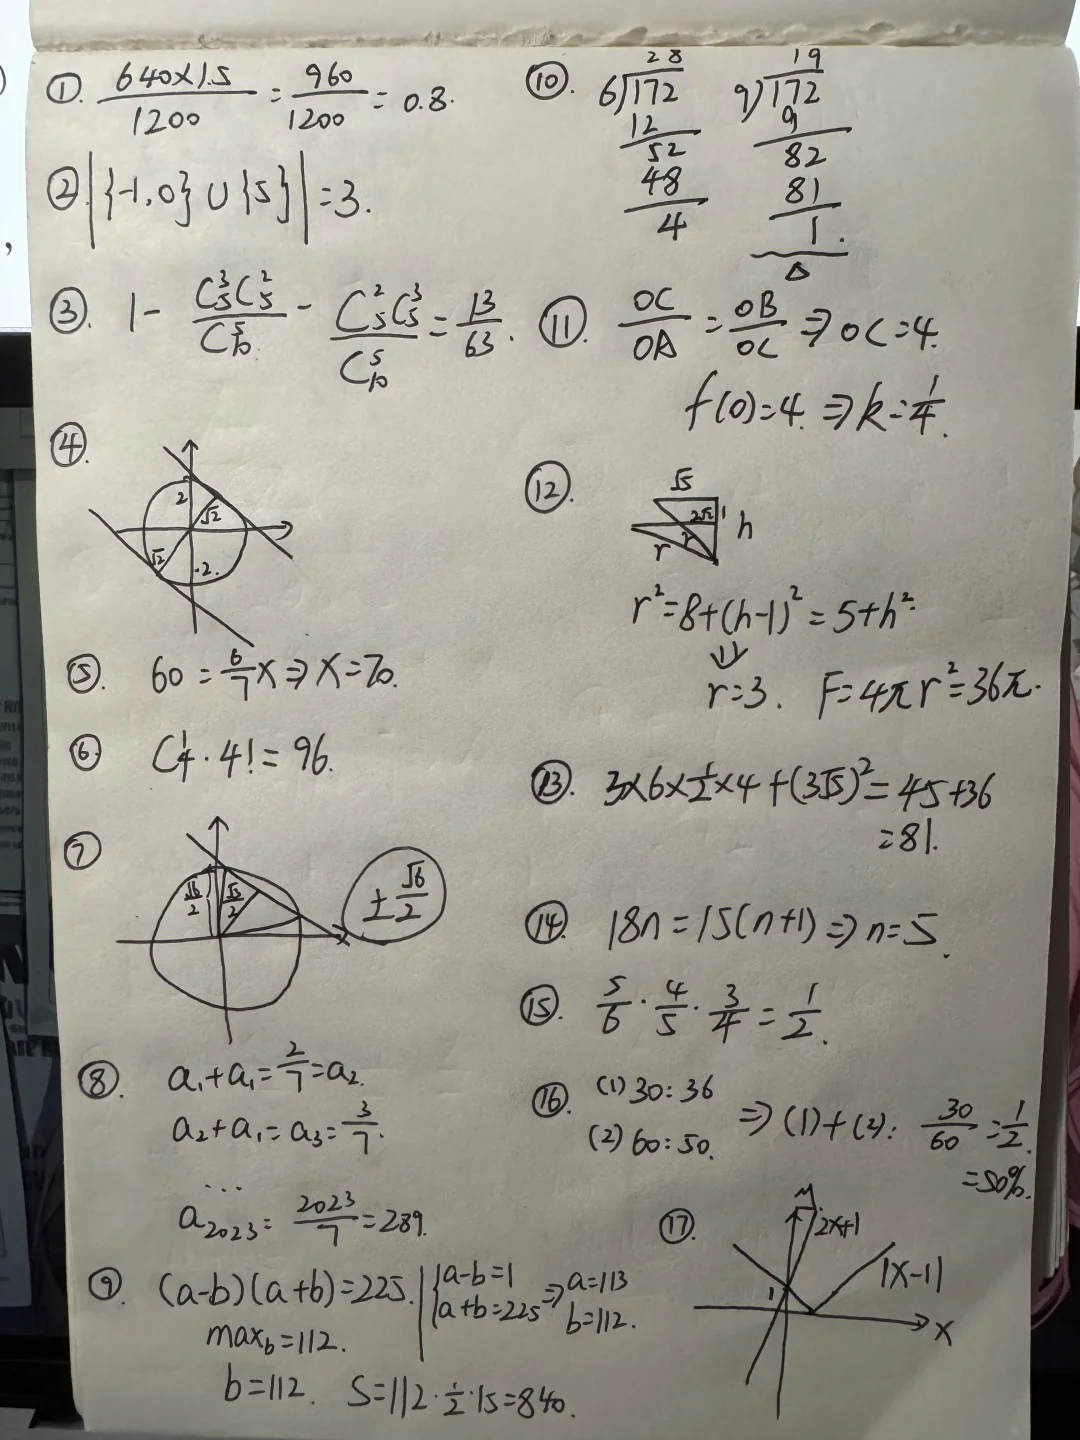 ①. 640×1.5/1200 = 960/1200 = 0.8.
②. |{-1,0}∪{5}| = 3.
③. 1 - C₅³C₅²/C₁₀⁵ - C₅²C₅³/C₁₀⁵ = 13/63.
④.
2
√2
√2
-2.
⑤. 60 = 6/7 x ⇒ x = 70.
⑥. C₄¹ · 4! = 96.
⑦
√6/2
√3/2
± √6/2
⑧. a₁+a₁ = 2/7 = a₂.
a₂+a₁ = a₃ = 3/7.
...
a₂₀₂₃ = 2023/7 = 289.
⑨. (a-b)(a+b) = 225. | { a-b=1 ⇒ a=113
a+b=225 b=112.
max_b = 112.
b=112. S=112·1/2·15=840.
⑩.
28 19
6)172 9)172
12 9
52 82
48 81
4 1.
△
⑪. OC/OA = OB/OC ⇒ OC=4.
f(0)=4. ⇒ k=1/4.
⑫.
√5
2√2 1 h
r r
r²=8+(h-1)²=5+h².
⇓
r=3. F=4πr²=36π.
⑬. 3×6×1/2×4+(3√5)²=45+36
=81.
⑭. 18n=15(n+1)⇒n=5.
⑮. 5/6 · 4/5 · 3/4 = 1/2.
⑯. (1) 30:36
(2) 60:50. ⇒ (1)+(2): 30/60 = 1/2.
=50%.
⑰.
2x+1
|x-1|
1
x